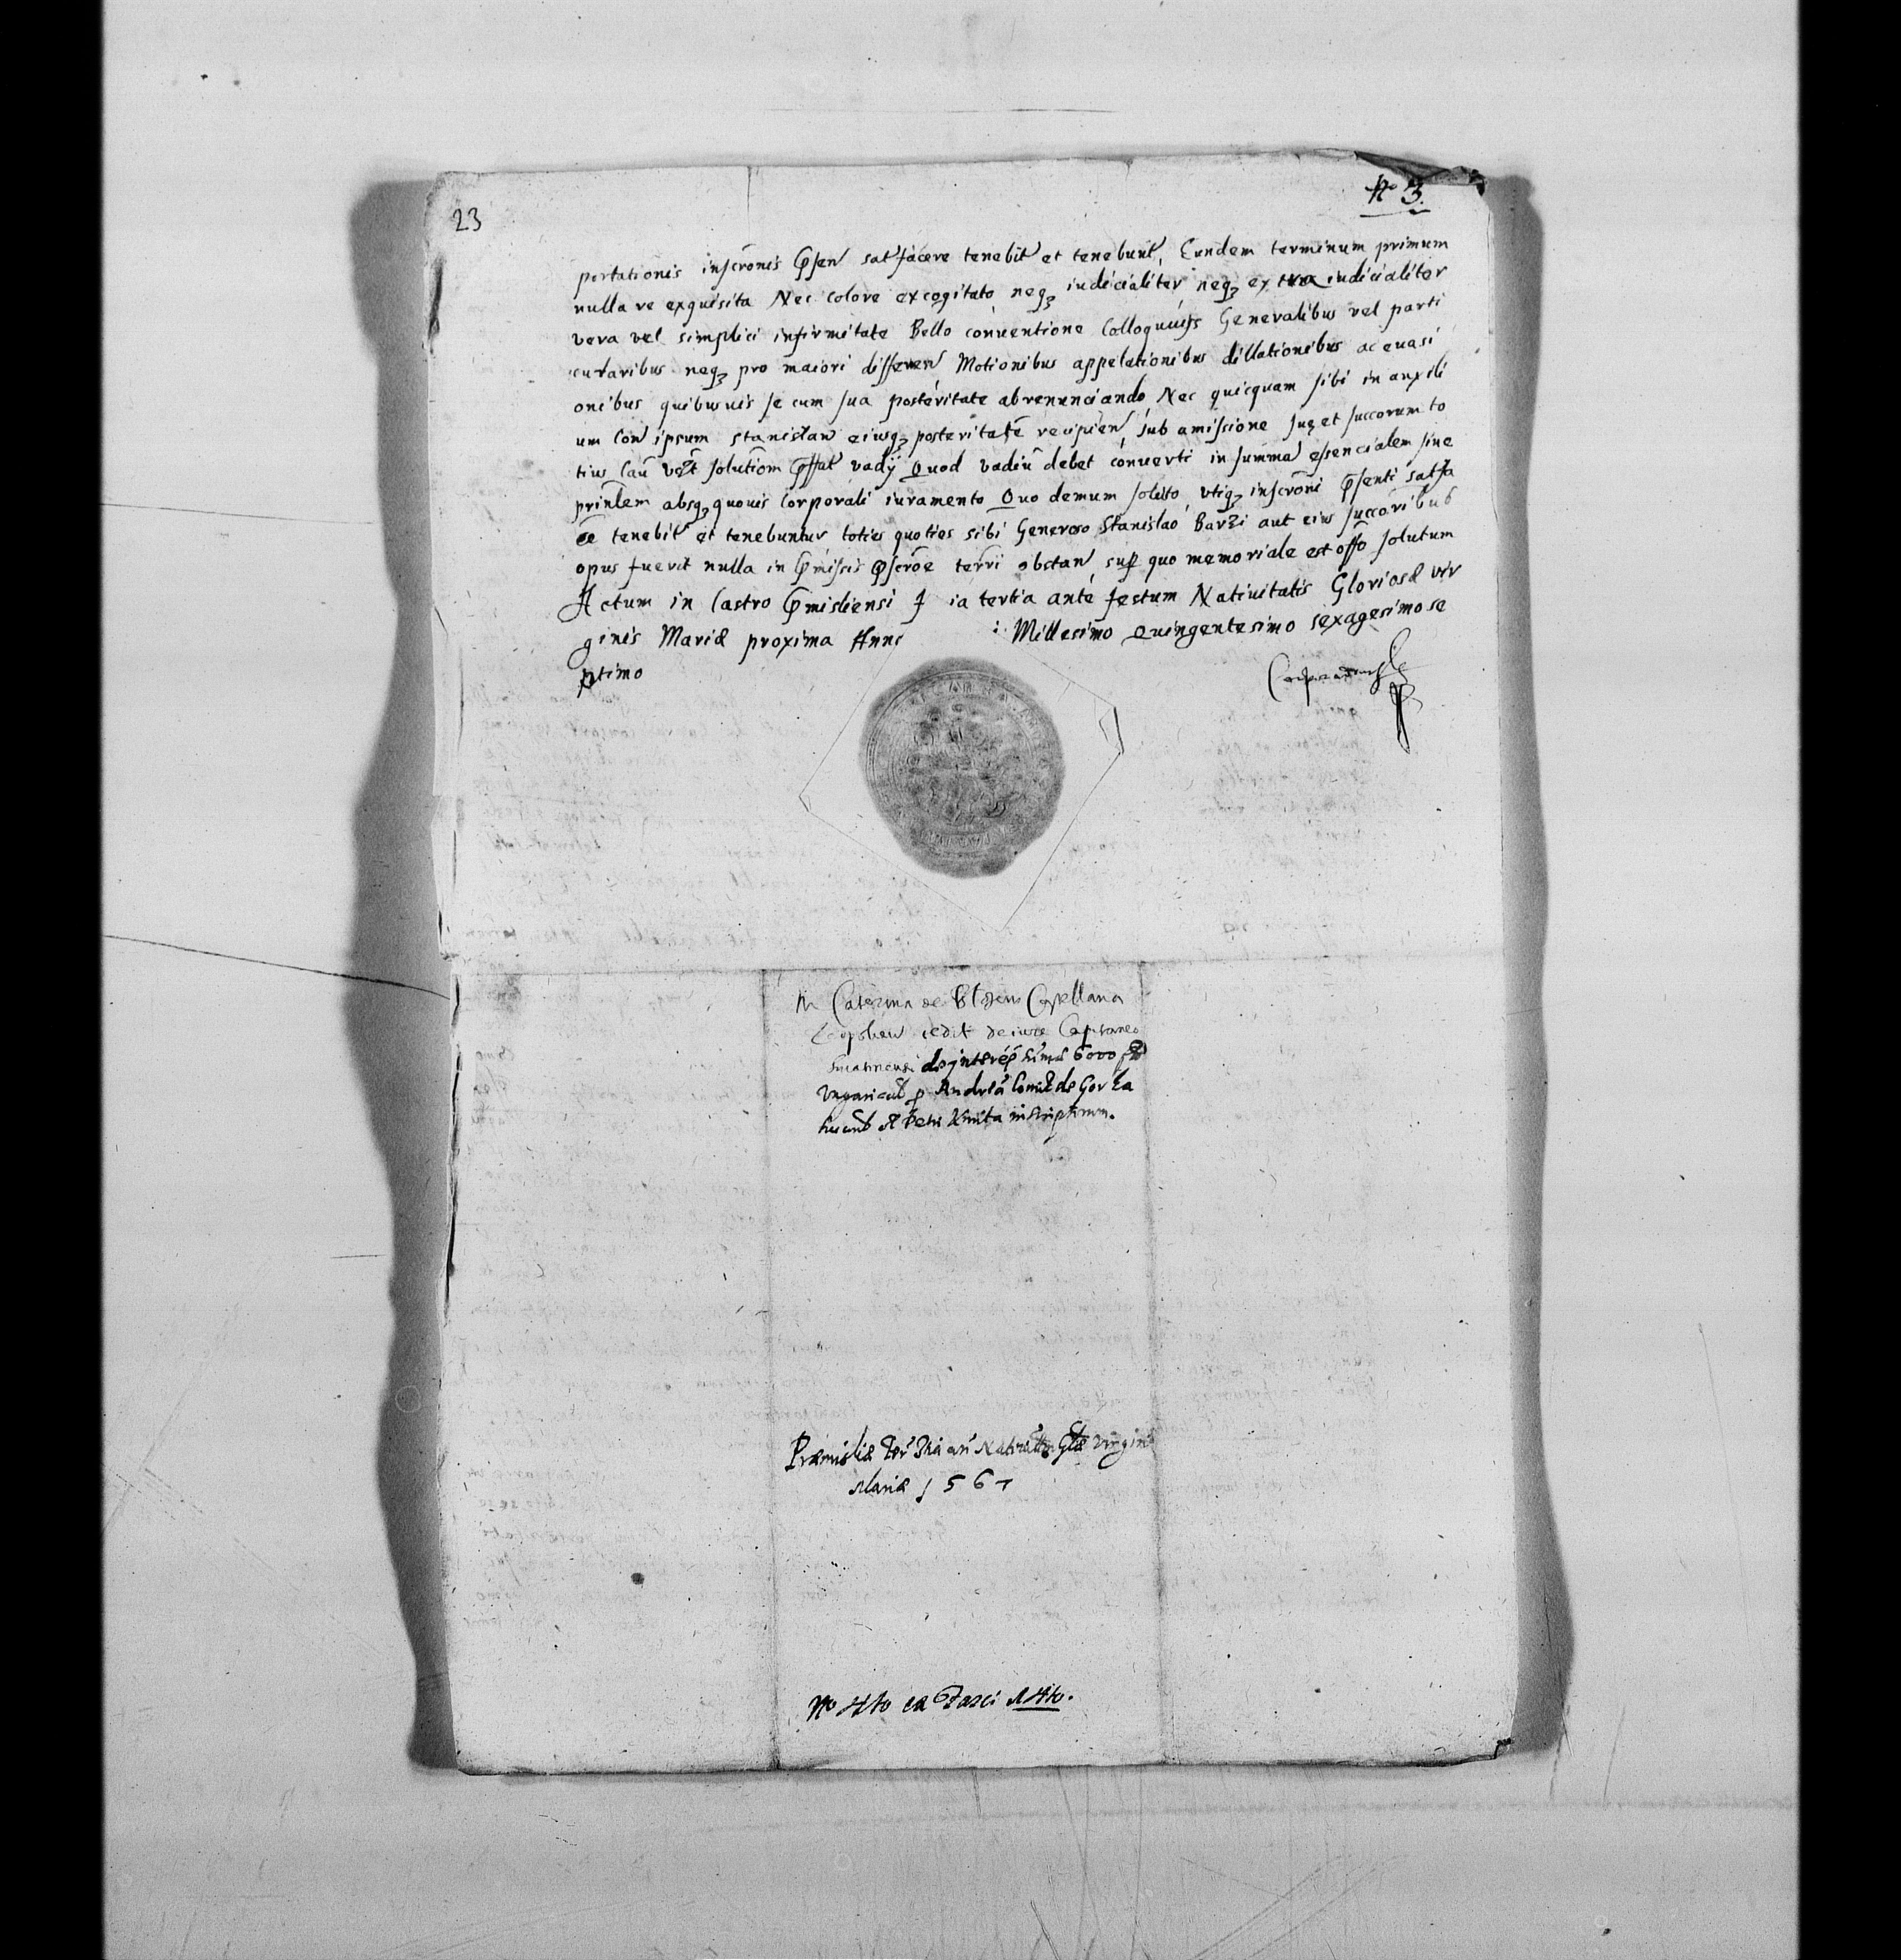 23
No 3.
portationis inscrõnis p̃sen satisfacere tenebit et tenebunt, Eundem terminum primum
nulla re exquisita Nec colore excogitato neq iudicialiter neq extra iudicialiter
vera vel simplici infirmitate Bello conuentione Colloquijs Generalibus vel parti
cularibus neq pro maiori differen Motionibus appelationibus dillationibus ac euasi
onibus quibusuis se cum sua posteritate abrenunciando Nec quicquam sibi in auxili
um Con ipsum Stanislau eiusq posteritatẽ recipien sub amissione suę et succorum to
tius Cau solutiom p̃ffat vadij Quod vadiũ debet conuerti in summã essencialem siue
prinlem absq quouis Corporali iuramento Quo demum soluto vtiq inscrõni p̃senti satfa
ce tenebit et tenebuntur toties quoties sibi Generoso Stanislao Barzi aut eius succoribus
opus fuerit nulla in p̃missis p̃scrõe terri obstan sup quo memoriale est offo solutum
Actum in Castro p̃misliensi f ia tertia ante festum Natiuitatis Gloriosæ vir
ginis Mariæ proxima Anno i Millesimo quingentesimo sexagesimo se
ptimo
Caterina de Castellana
cedit de iure Capitaneo
de interes sum 6000
Vngarical p Andreã Comit de Gorka
et Petri Kmita inscriptum.
Præmisliæ fer 3tia an Natiuitatis Glæ Virginis
Mariæ 1567
No 4to ex Fasci 4to.